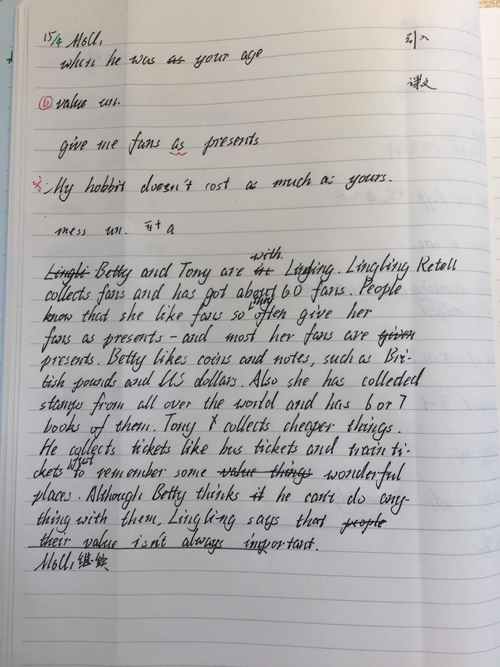 15/4 M6U1
引入
when he was as your age
课文
① value un.
give me fans as presents
My hobbit doesn't cost as much as yours.
mess un. 可+ a
Lingli Betty and Tony are in with Lingling. Lingling Retell
collects fans and has got about 60 fans. People
know that she like fans so they often give her
fans as presents - and most her fans are given
presents. Betty likes coins and notes, such as Bri-
tish pounds and US dollars. Also she has collected
stamps from all over the world and has 6 or 7
books of them. Tony collects cheaper things.
He collects tickets like bus tickets and train ti-
ckets just to remember some value things wonderful
places. Although Betty thinks it he can't do any-
thing with them, Lingling says that people
their value isn't always important.
M6U1